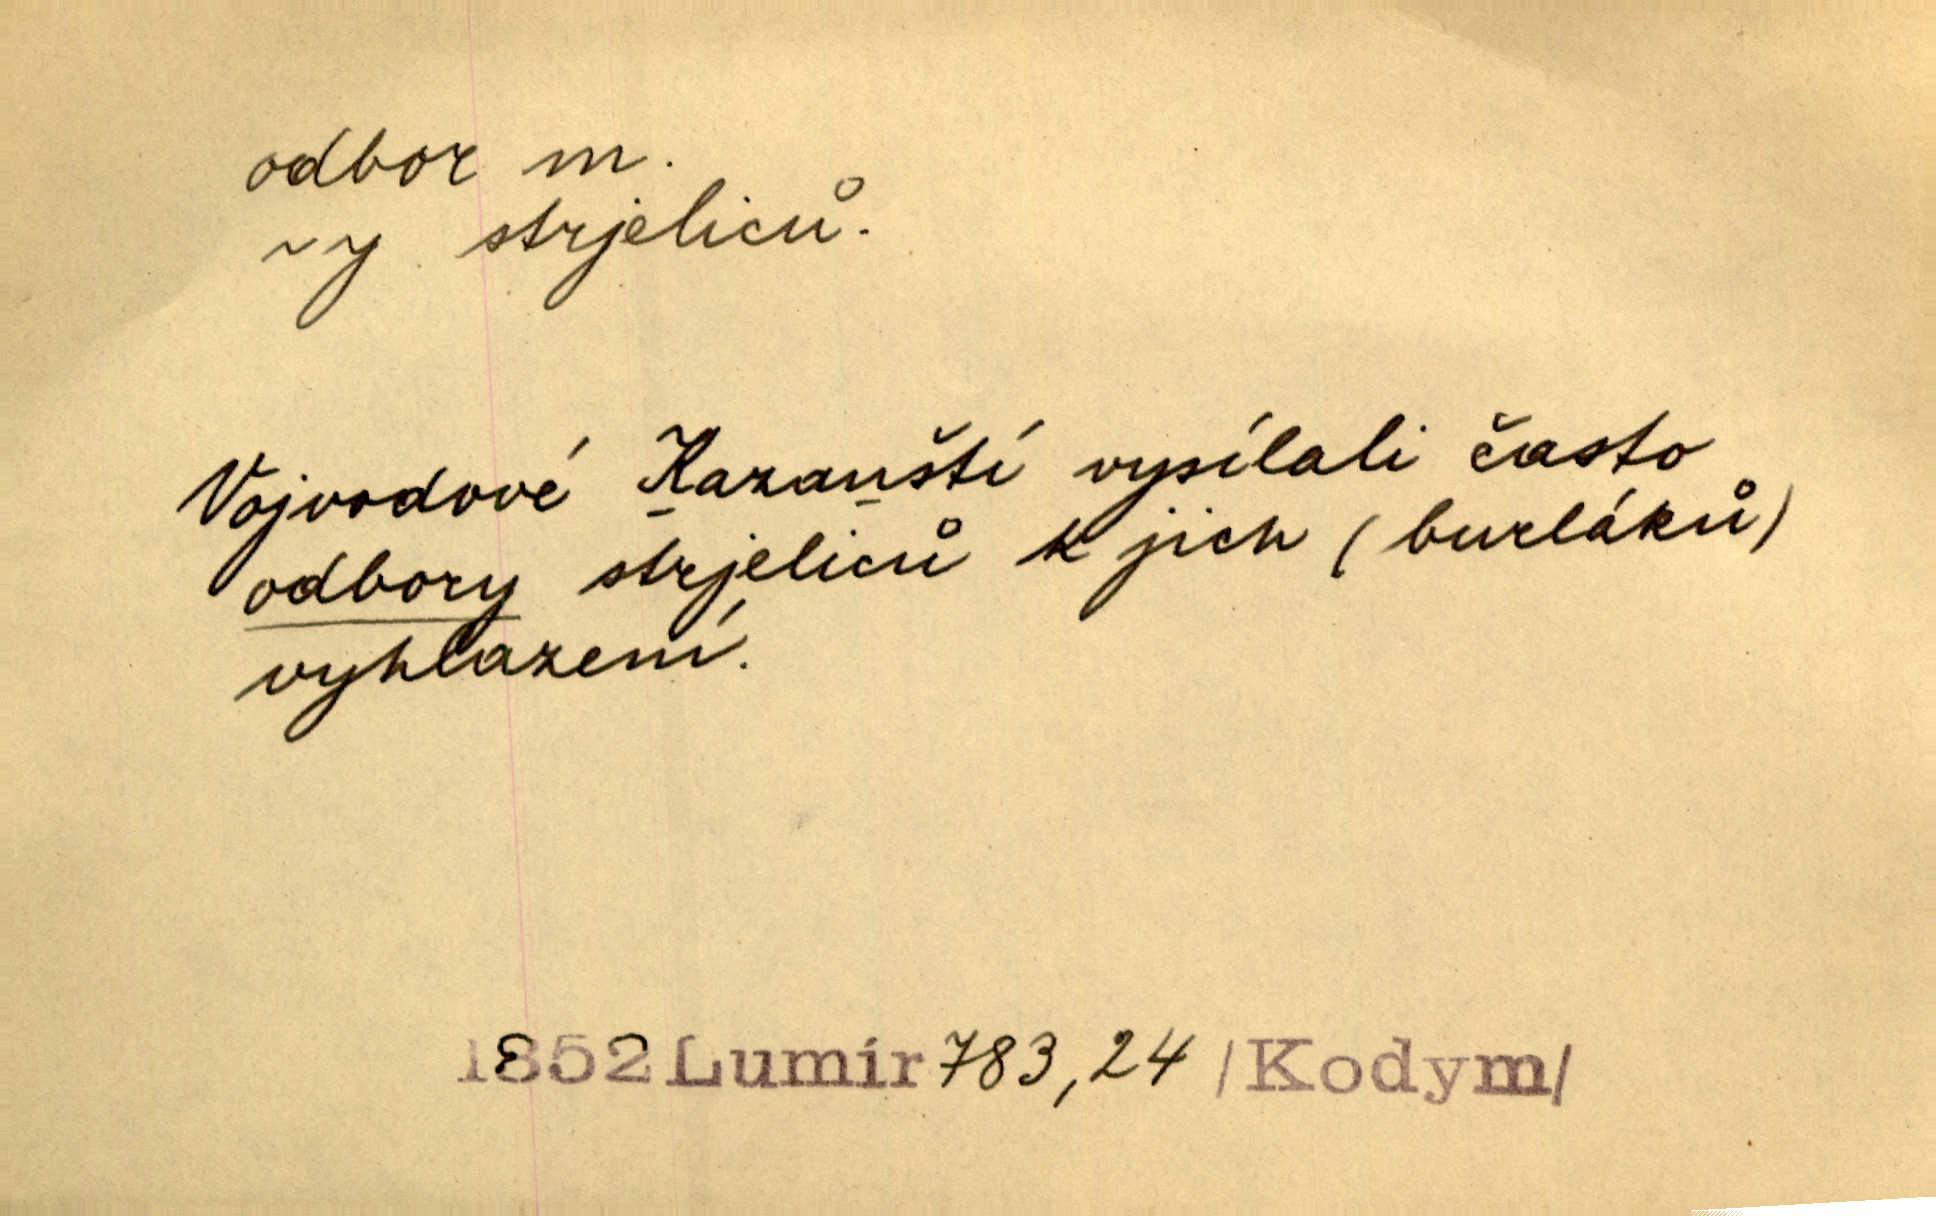 odbor m.
~y strjeliců.
Vojvodové Kazanští vysílali často
odbory strjeliců k jich (burláků)
vyhlazení.
1852 Lumír 783,24 /Kodym/